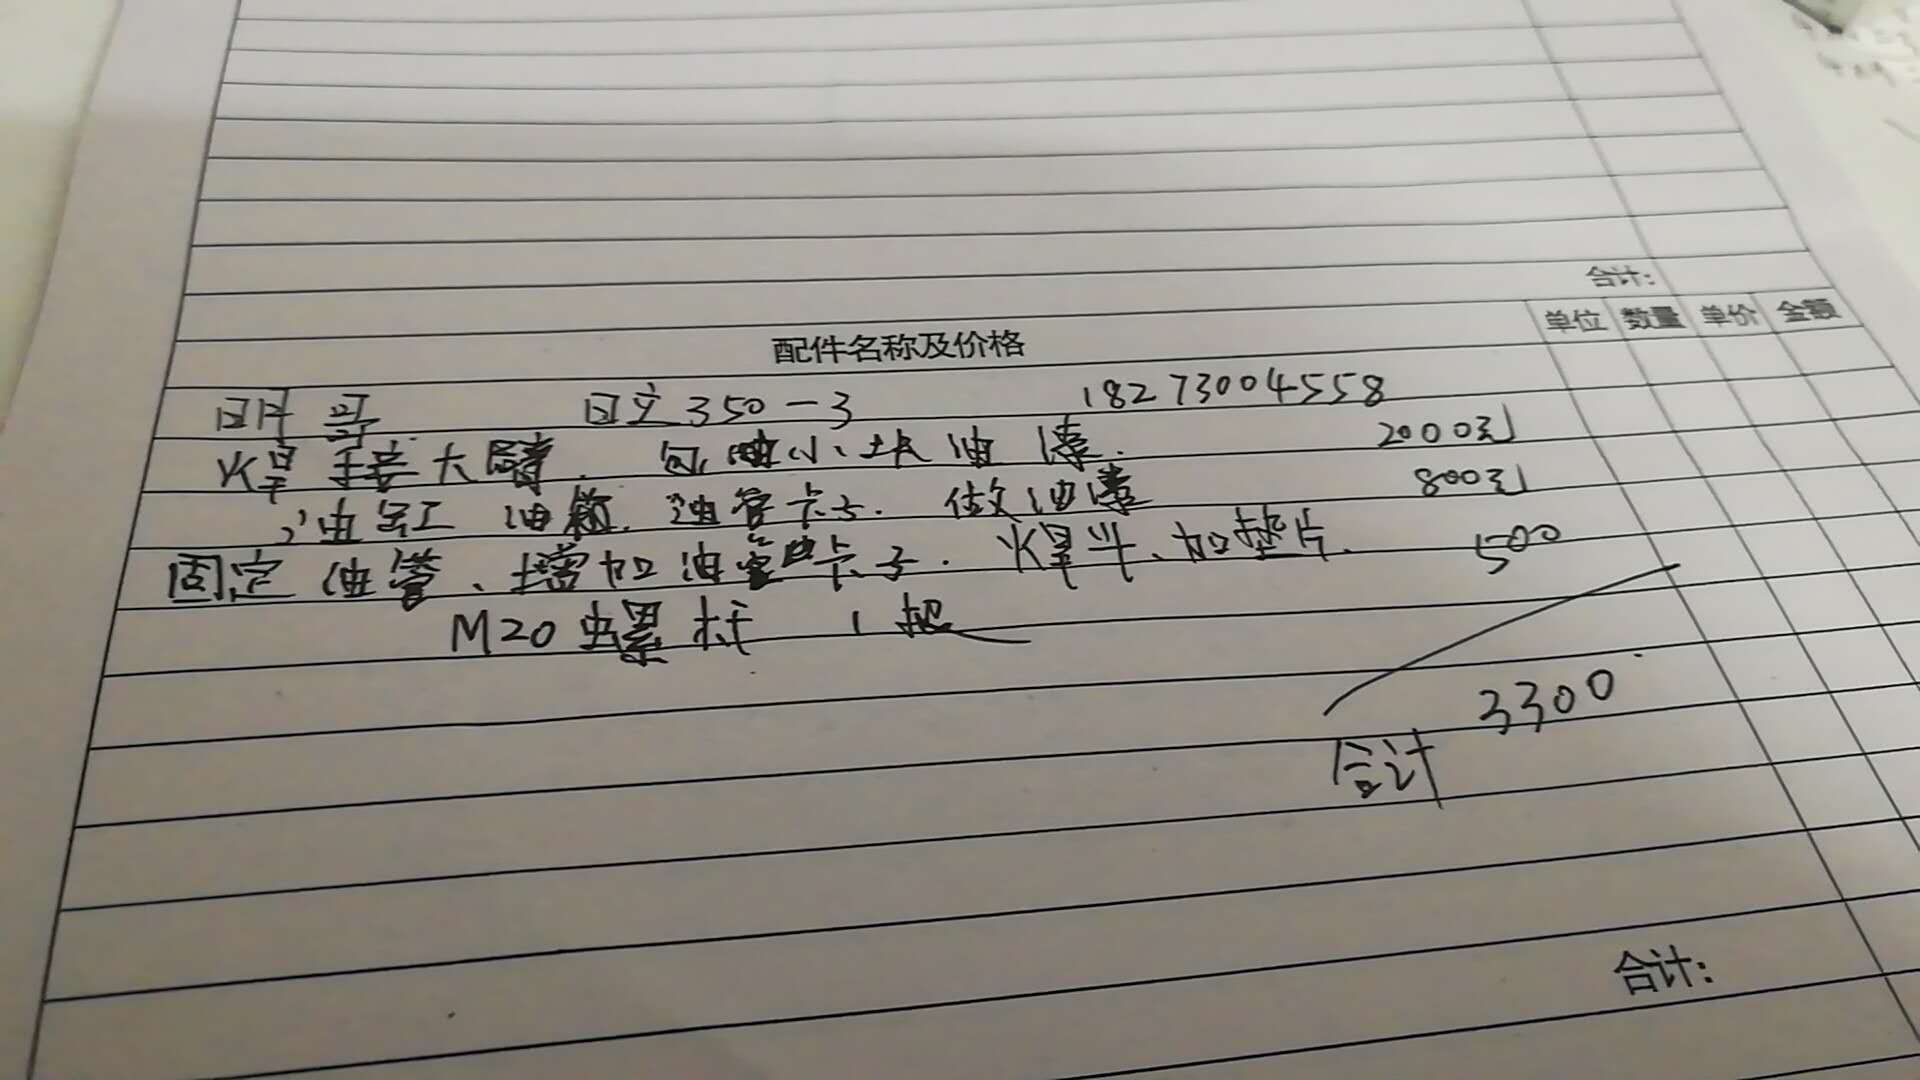 合计:
配件名称及价格 单位 数量 单价 金额
明哥 日立350-3 18273004558
焊接大臂. 包油小块油漆. 2000元
油缸 油箱. 油管卡子. 做油漆 800元
固定油管、增加油管卡子. 焊斗、加垫片. 500
M20螺杆 1根
3300
合计
合计: